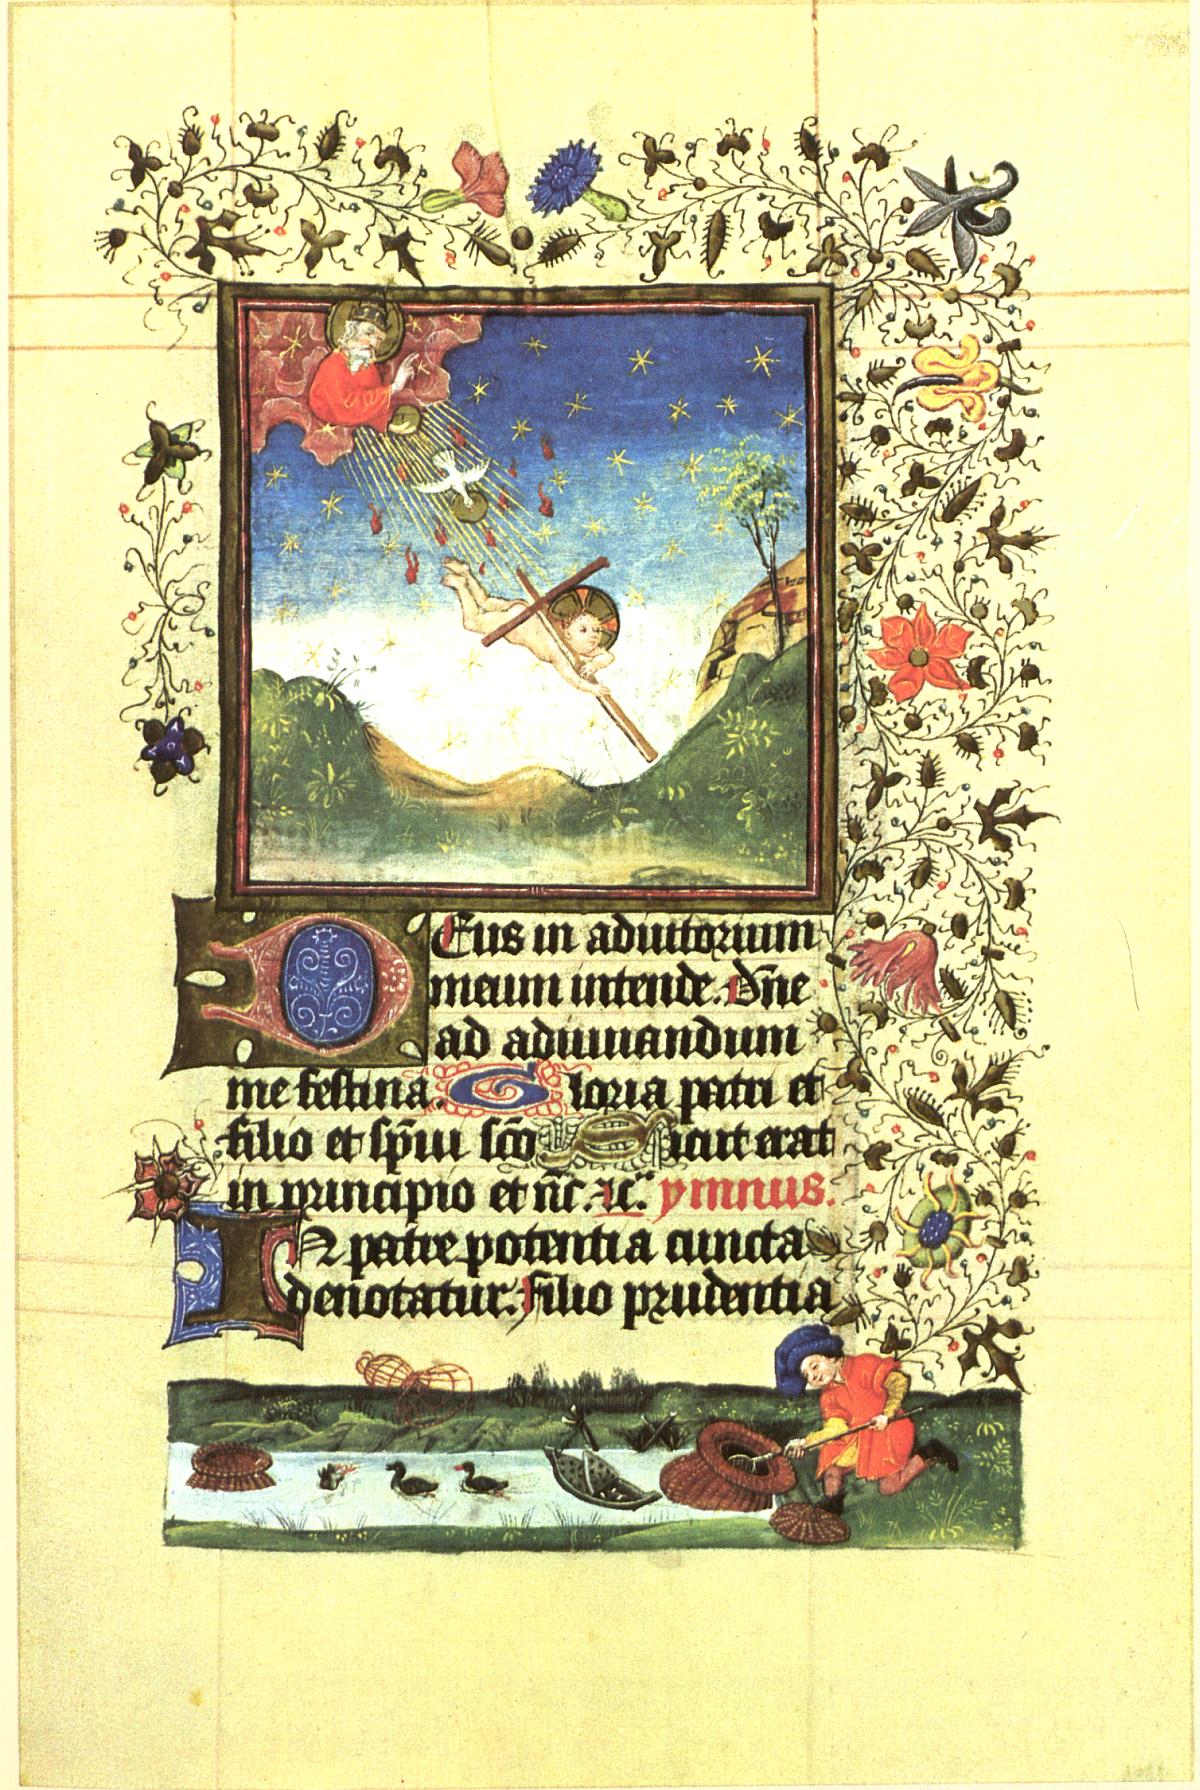 DEus in adiutorium
meum intende. Dn̄e
ad adiuuandum
me festina. Gloria patri et
filio et sp̄iui sc̄o Sicut erat
in principio et nc̄. ꝛc̄. ymnus.
IN patre potentia cuncta
denotatur. filio prudentia